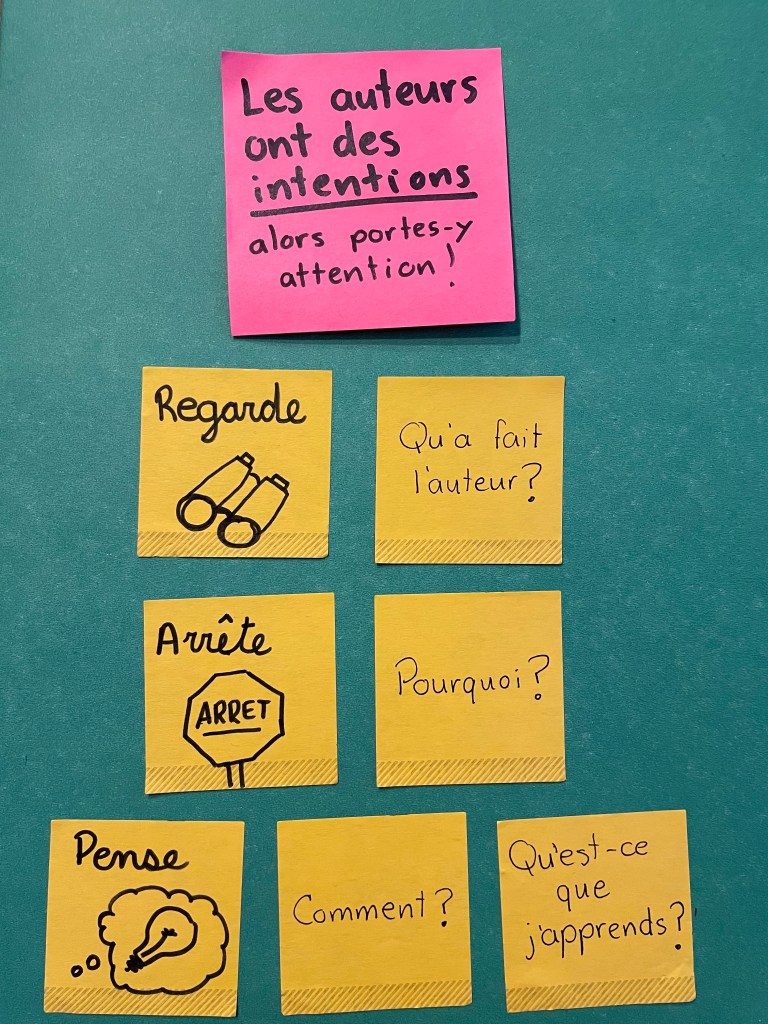 Les auteurs
ont des
intentions
alors portes-y
attention!
Regarde
Qu'a fait
l'auteur?
Arrête
ARRET
Pourquoi?
Pense
Comment?
Qu'est-ce
que
j'apprends?